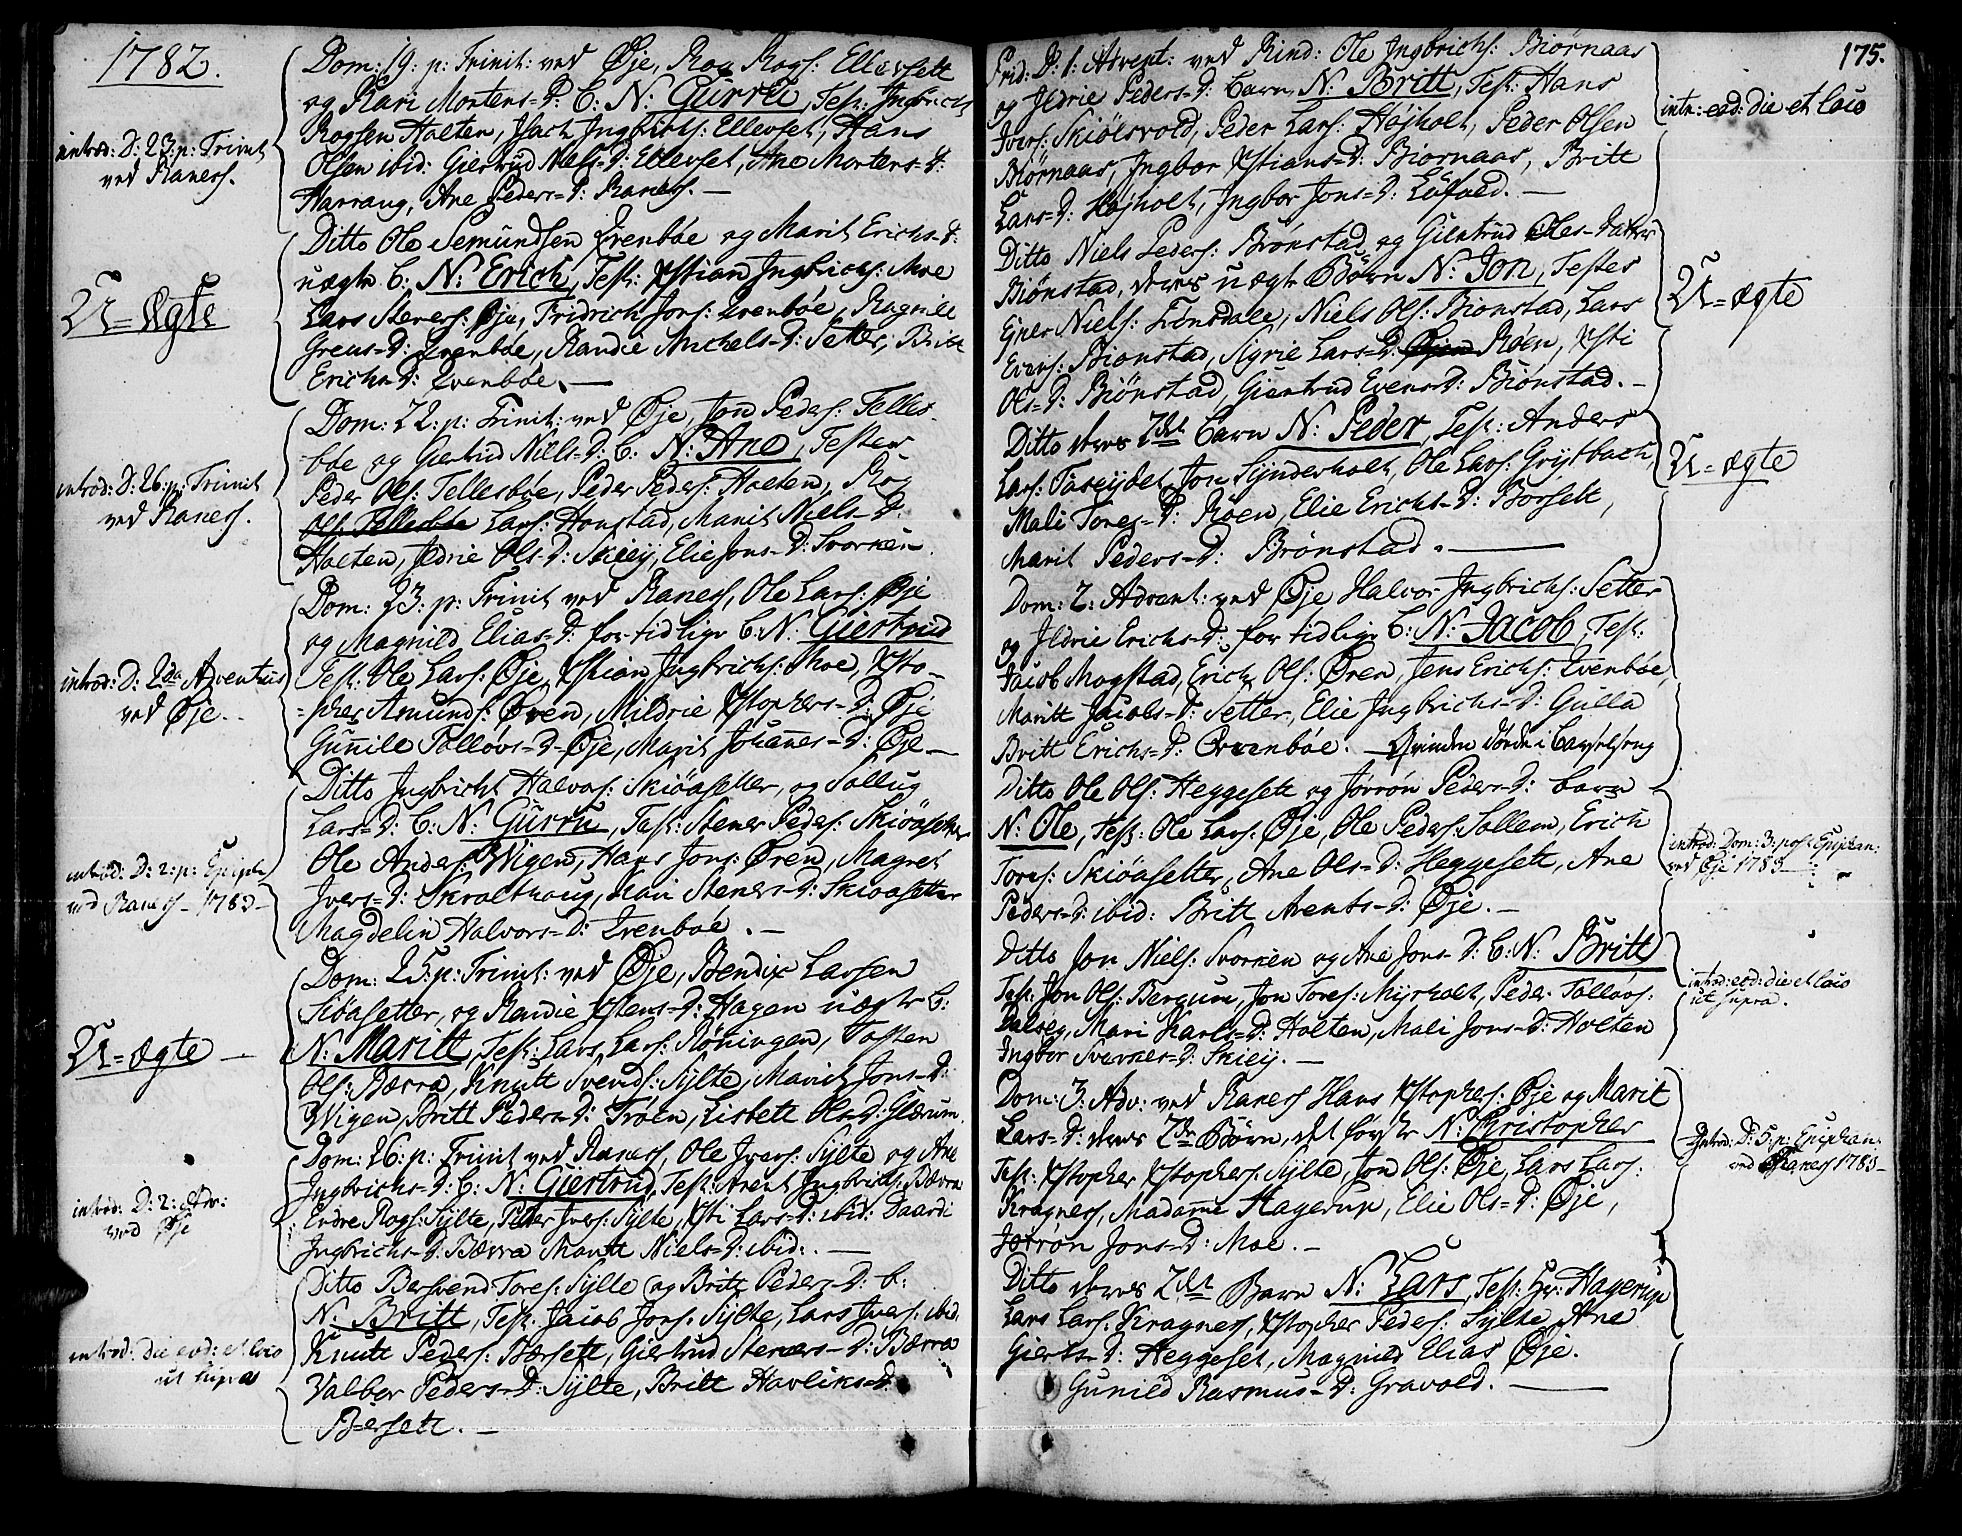 1782.
Dom: 19. p: Trinit: ved Øje, Roa Roas: Ellevsett
og Kari Mortens=D: b: N: Gurru, Test: Ingbricht
Roasen Holten, Isach Ingbrichs: Ellevset, Hans
Olsen ibid: Giertrud Niels=D: Ellevset, Ane Mortens=D:
Harrang, Ane Peders=D: Raness. —
introd: D: 23: p: Trinit
ved Raness.
Ditto Ole Semundsen Qvenbøe og Marit Erichs=D:
uægte b: N: Erich, Test: Xstian Ingbrichs: Moe
Lars Steners: Øje, Fridrich Jons: Qvenbøe, Ragnild
Greus=D: Qvenbøe, Randie Michels=D: Setter, Britt
Erichs=D: Qvenbøe. —
U=ægte
Dom: 22. p: Trinit: ved Øje, Jon Peders: Telles-
bøe og Giertrud Niels=D: b: N: Ane, Tester
Peder Ols: Tellesbøe, Peder Peders: Holten, Roa
Ols: Tellesbøe Lars: Honstad, Marit Niels=D:
Holten, Ildrie Ols=D: Skiey, Elie Jons=D: Svorken.
introd: D: 26: p: Trinit
ved Raness.
Dom: 23. p: Trinit ved Raness, Ole Lars: Øje
og Magnild Elias=D: for tidlig b: N: Giertrud
Test: Ole Lars: Øje, Xstian Ingbrichs: Moe, Xsto-
=pher Amunds: Øren, Mildrie Xstophers=D: Øje
Gunnile Tolløvs=D: Øje, Marit Johannes=D: Øje —
introd: D: 2da Adventus
ved Øje.
Ditto Ingbricht Halvors: Skiøasetter, og Sollug
Lars=D: b: N: Gurru, Test: Stener Peders: Skiøasetter
Ole Anders: Wigen, Hans Jons: Øren, Magret
Ivers=D: Skralthaug, Kari Steners=D: Skiøasetter
Magdelin Halvors=D: Qvenbøe. —
introd: D: 2: p: Epiph
ved Raness — 1783 —
Dom: 25. p: Trinit: ved Øje, Bendix Larsen
Skiøasetter, og Randie Xstens=D: Hagen uægte b:
N: Maritt, Test: Lars Lars: Røningen, Tosten
Ols: Bærra, Knutt Svends: Sylte, Marit Jons=D:
Wigen, Britt Peders=D: Troen, Lisbett Ols=D: Glærum.
U=ægte —
Dom: 26: p: Trinit ved Raness, Ole Ivers: Sylte og Ane
Ingbrichs=D: b: N: Giertrud, Test: Arent Ingbrichs: Bærra
Endre Roas: Sylte, Peder Ivers: Sylte, Xsti Lars=D: ibid: Daardi
Ingbrichs=D: Bærra Marit Niels=D: ibid: —
introd: D: 2: Adv:
ved Øje
Ditto Bersvend Tores: Sylte og Britt Peders=D: b:
N: Britt, Test: Jacob Jons: Sylte, Lars Ivers: ibid
Knutt Peders: Børsett, Giertrud Steners=D: Bærra
Valbor Peders=D: Sylte, Britt Havliks=D:
Børsett. —
introd: die eod: et loco
ut supra
175.
Frid: D: 1: Advent: ved Rind: Ole Ingbrichs: Biørnaas
og Ildrie Peders=D: barn N: Britt, Test: Hans
Ivers: Skiølsvold, Peder Lars: Højholt, Peder Olsen
Biørnaas, Ingbor Xstians=D: Biørnaas, Britt
Lars=D: Højholt, Ingbor Jons=D: Løfald. —
intr: eod: die et loco
Ditto Niels Peders: Brønstad og Giertrud Oles=datter
Biønstad, deres uægte Børn N: Jon, Testes
Ejner Niels: Trønsdale, Niels Ols: Biønstad, Lars
Evens: Biønstad, Sigrie Lars=D: Røen, Xsti
Ols=D: Biønstad, Giertrud Evens=D: Biønstad. —
U=ægte
Ditto deres 2det barn N: Peder, Test: Anders
Lars: Taseydet, Jon Synderholt, Ole Lars: Grytbach,
Mali Tores=D: Røen, Elie Erichs=D: Børsett,
Marit Peders=D: Brønstad. —
U=ægte
Dom: 2: Advent: ved Øje Halvor Ingbrichs: Setter
og Ildrie Erichs=D: for tidlig b: N: Jacob, Test:
Jacob Mogstad, Erich Ols: Øren, Jens Erichs: Qvenbøe,
Maritt Jacobs=D: Setter, Elie Ingbrichs=D: Gulla
Britt Erichs=D: Qvenbøe. — Qvinden døde i barselseng
Ditto Ole Ols: Heggesett og Jørrøn Peders=D: barn
N: Ole, Test: Ole Lars: Øje, Ole Peders: Sollem, Erich
Tores: Skiøasetter, Ane Ols=D: Heggesett, Ane
Peders=D: ibid: Britt Arents=D: Øje. —
introd: Dom: 3: post Epiphan:
ved Øje 1783 —
Ditto Jon Niels: Svorken og Ane Jons=D: b: N: Britt
Test: Jon Ols: Bergum, Jon Tores: Myrholt, Peder Tolløvs:
Dalsey, Mari Karls=D: Holten, Mali Jons=D: Holten
Ingbor Sverkes=D: Skiey. —
introd: eod: die et loco
ut supra.
Dom: 3. Adv: ved Raness Hans Xstophers: Øje og Marit
Lars=D: deres 2de Børn, det første N: Christopher
Test: Xstopher Xstophers: Sylte, Jon Ols: Øje, Lars Lars:
Kragness, Madame Hagerup, Elie Ols=D: Øje,
Jørrøn Jons=D: Moe. —
Introd: D: 5: p: Epiphan:
ved Raness 1783 —
Ditto deres 2det Barn N: Lars, Test: Hr: Hagerup
Lars Lars: Kragness, Xstopher Peders: Sylte, Ane
Gierts=D: Heggeset, Magnild Elias Øje.
Gunild Rasmus=D: Gravold. —